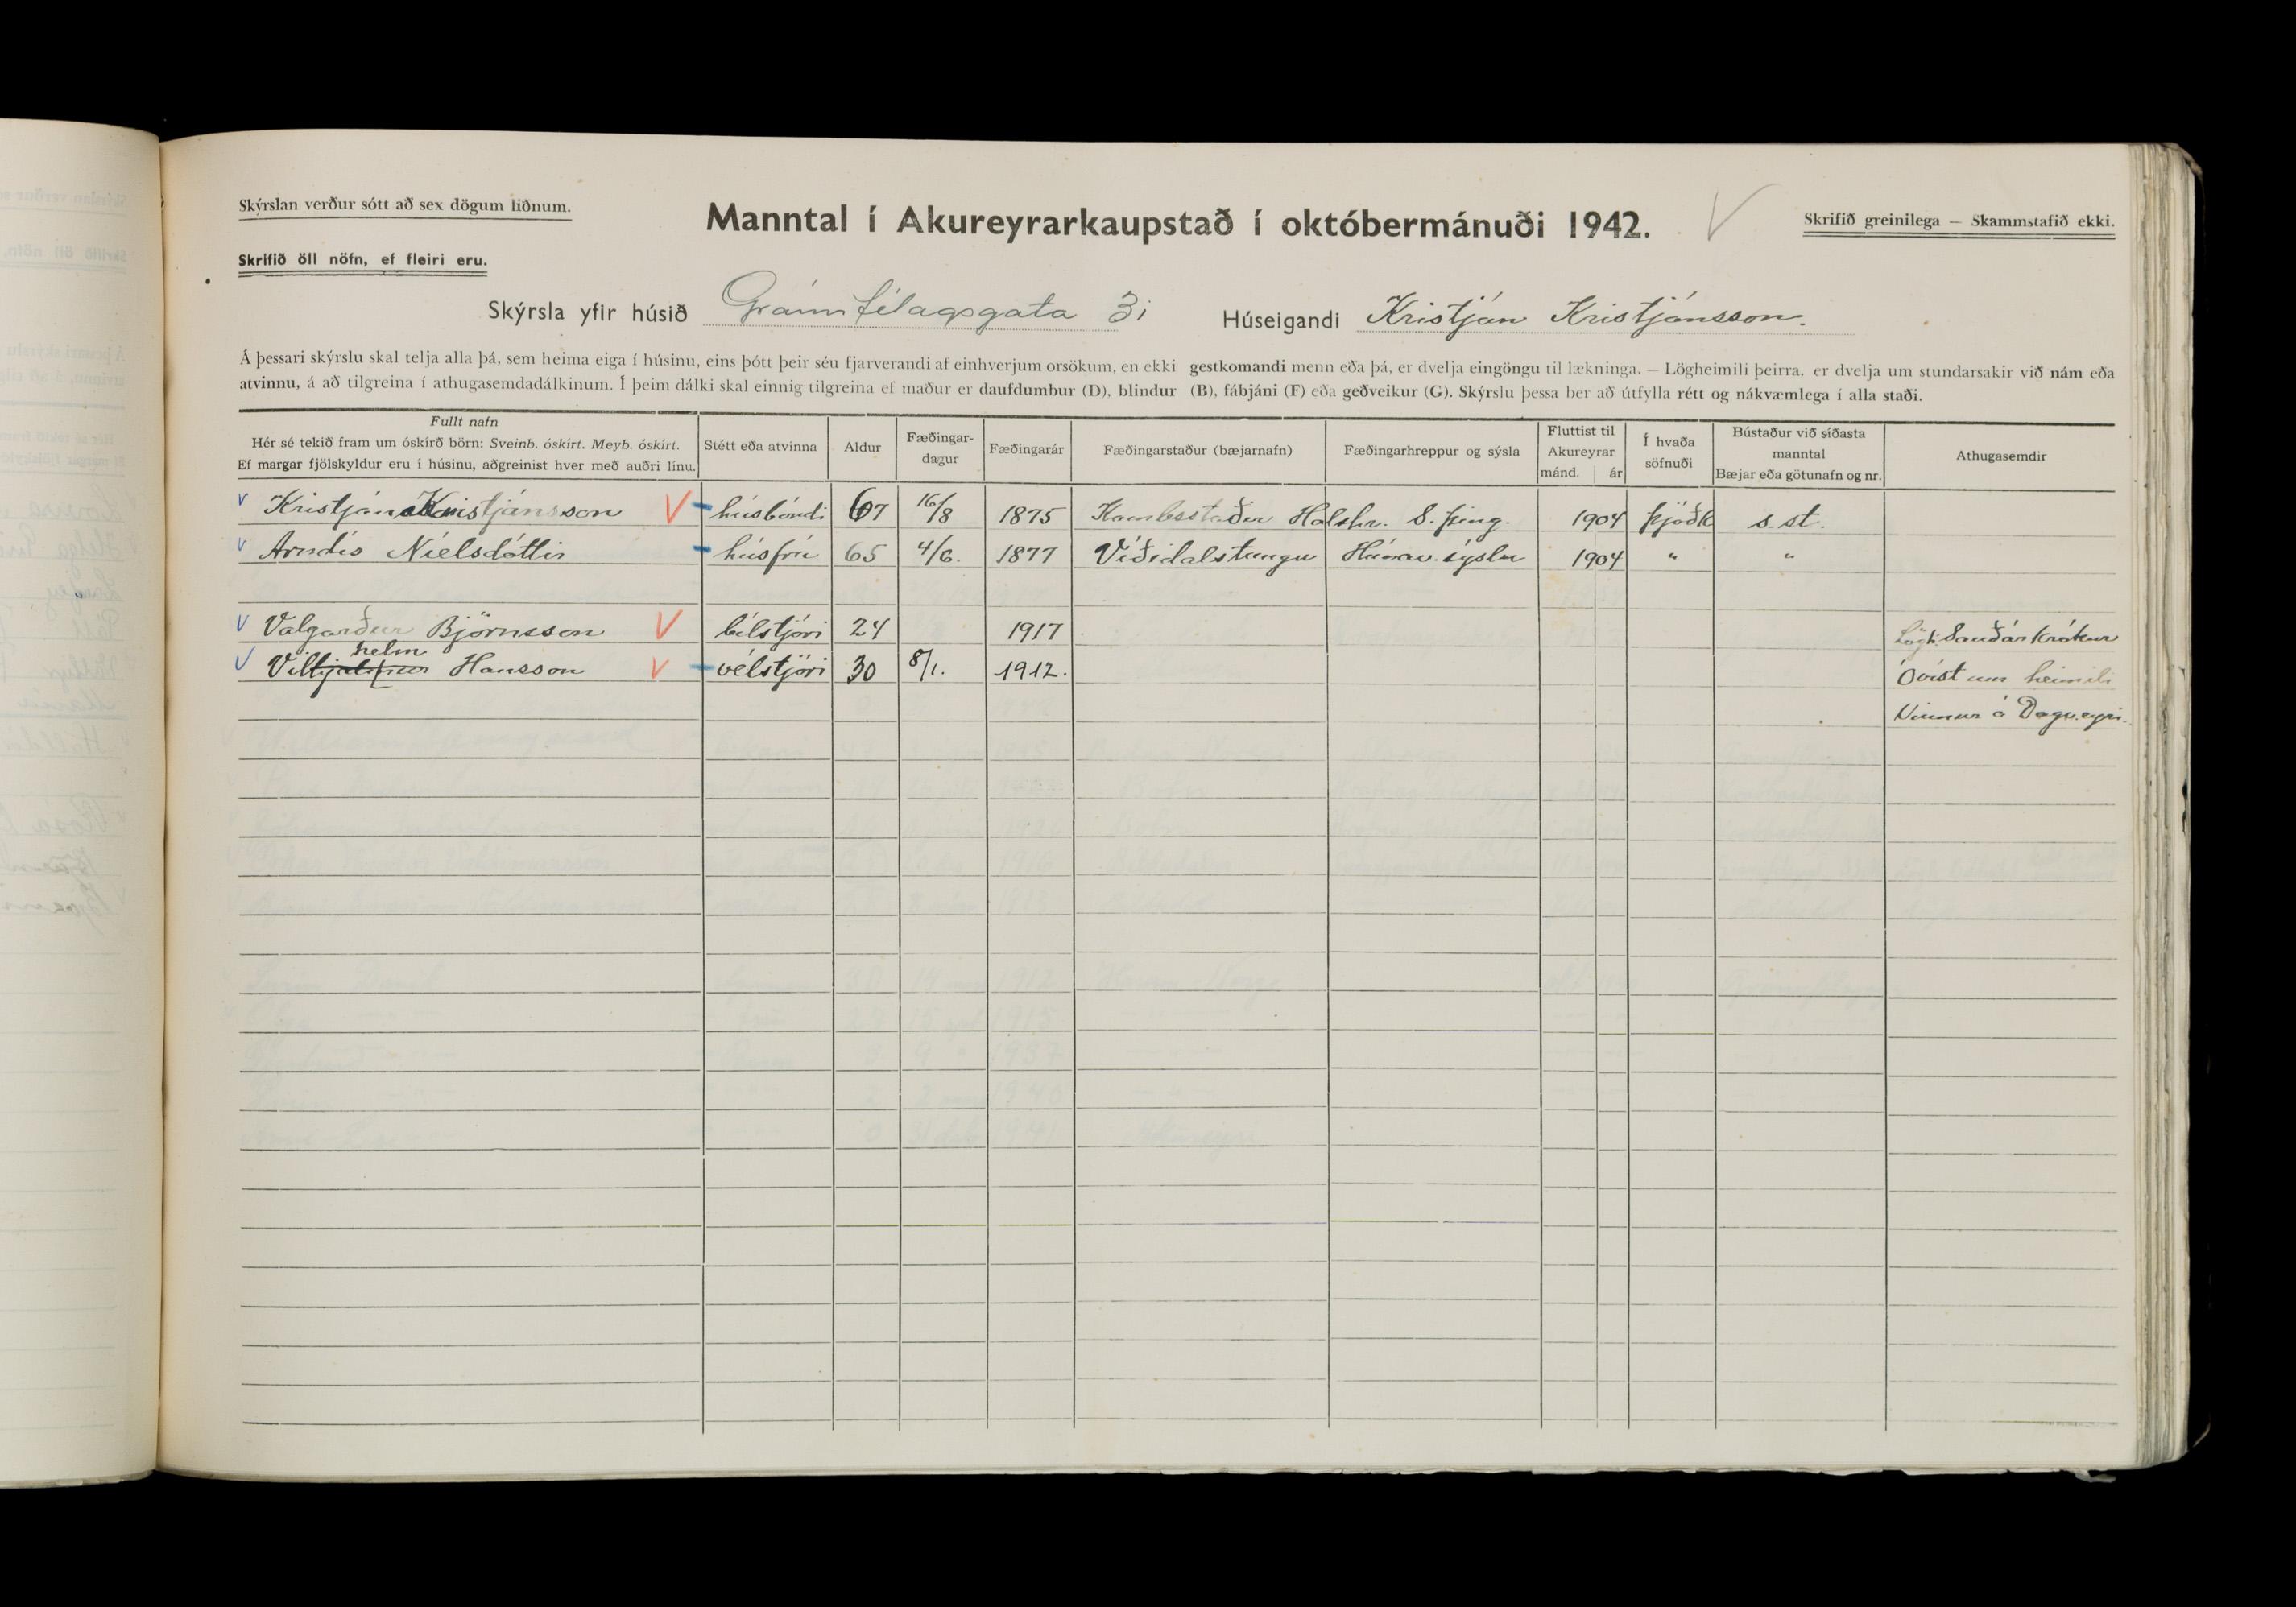 Skýrslan verður sótt að sex dögum liðnum.
Manntal í Akureyrarkaupstað í októbermánuði 1942.
Skrifið greinilega — Skammstafið ekki.
Skrifið öll nöfn, ef fleiri eru.
Skýrsla yfir húsið Gránufélagsgata 31 Húseigandi Kristján Kristjánsson.
Á þessari skýrslu skal telja alla þá, sem heima eiga í húsinu, eins þótt þeir séu fjarverandi af einhverjum orsökum, en ekki gestkomandi menn eða þá, er dvelja eingöngu til lækninga. — Lögheimili þeirra, er dvelja um stundarsakir við nám eða
atvinnu, á að tilgreina í athugasemdadálkinum. Í þeim dálki skal einnig tilgreina ef maður er daufdumbur (D), blindur (B), fábjáni (F) eða geðveikur (G). Skýrslu þessa ber að útfylla rétt og nákvæmlega í alla staði.
Fullt nafn
Hér sé tekið fram um óskírð börn: Sveinb. óskírt. Meyb. óskírt.
Ef margar fjölskyldur eru í húsinu, aðgreinist hver með auðri línu.
Stétt eða atvinna
Aldur
Fæðingar-
dagur
Fæðingarár
Fæðingarstaður (bæjarnafn)
Fæðingarhreppur og sýsla
Fluttist til
Akureyrar
mánd. ár
Í hvaða
söfnuði
Bústaður við síðasta
manntal
Bæjar eða götunafn og nr.
Athugasemdir
V Kristján Kristjánsson V húsbóndi 67 16/8 1875 Kambsstaðir Hálshr. S. Þing. 1904 Þjóðk s. st.
V Arndís Níelsdóttir húsfrú 65 4/6. 1877 Víðidalstungu Húnav. sýslu 1904 " "
V Valgarður Björnsson V bílstjóri 24 1917 Lögh. Sauðárkrókur
helm
V Vilhjálmur Hansson V vélstjóri 30 8/1. 1912. Óvíst um heimili
Vinnur á Dagv.eyri.